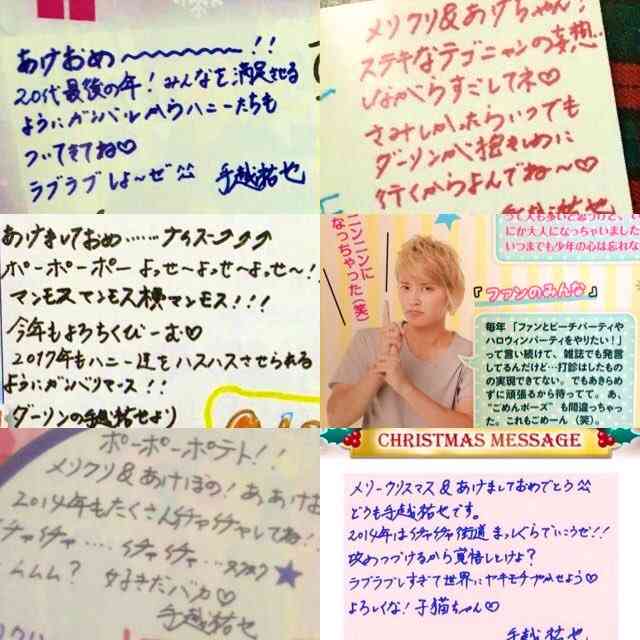 あけおめ〜〜〜〜〜〜!!
20代最後の年!みんなを満足させる
ようにガンバルからハニーたちも
ついてきてね♡
ラブラブしよ〜ぜ^^ 手越祐也
メリクリ&あけちゃん!
ステキなテゴニャンの妄想..
しながらすごしてネ♡
さみしかったらいつでも
ダーリンが抱きしめに
行くからよんでね〜♡
手越祐也
あけましておめ……ナイスーククク
ポーポーポー よっせ〜よっせ〜よっせ〜!
マンモスマンモス横マンモス!!!
今年もよろちくびーむ♡
2017年もハニー達をハスハスさせられる
ようにガンバリマース!!
ダーリンの手越祐也より
ニンニンに
なっちゃった(笑)
って人も多いと思うけど、
にか大人になっちゃいました
いつまでも少年の心は忘れな
『ファンのみんな』
毎年「ファンとビーチパーティや
ハロウィンパーティをやりたい!」
って言い続けて、雑誌でも発言
してるんだけど…打診はしたもの
の実現できてない。でもあきらめ
ずに頑張るから待ってて。あ、
“ごめんポーズ”も間違っちゃっ
た。これもごめーん(笑)。
ポーポーポテト!!
メリクリ&あけほの!あ、あけお
2014年もたくさんイチャイチャしてね!
チャイチャ……イチャイチャ…
ムムム? 好きだバカ♡
手越祐也
CHRISTMAS MESSAGE
メリークリスマス&あけましておめでとう^^
どうも手越祐也です。
2014年はイチャイチャ街道まっしぐらでいこうぜ!!
攻めつづけるから覚悟しとけよ?
ラブラブしすぎて世界にヤキモチやかせよう♡
よろしくな!子猫ちゃん♡
手越祐也